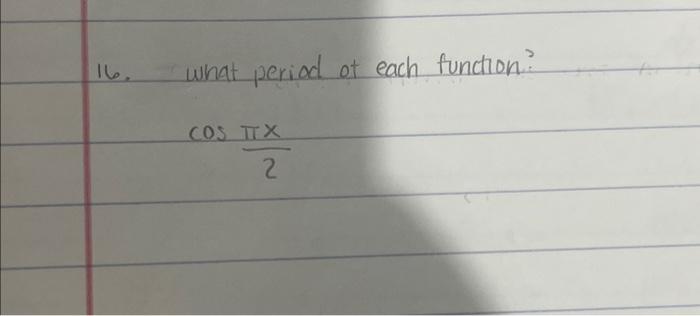 16. what period of each function?
cos πx
2